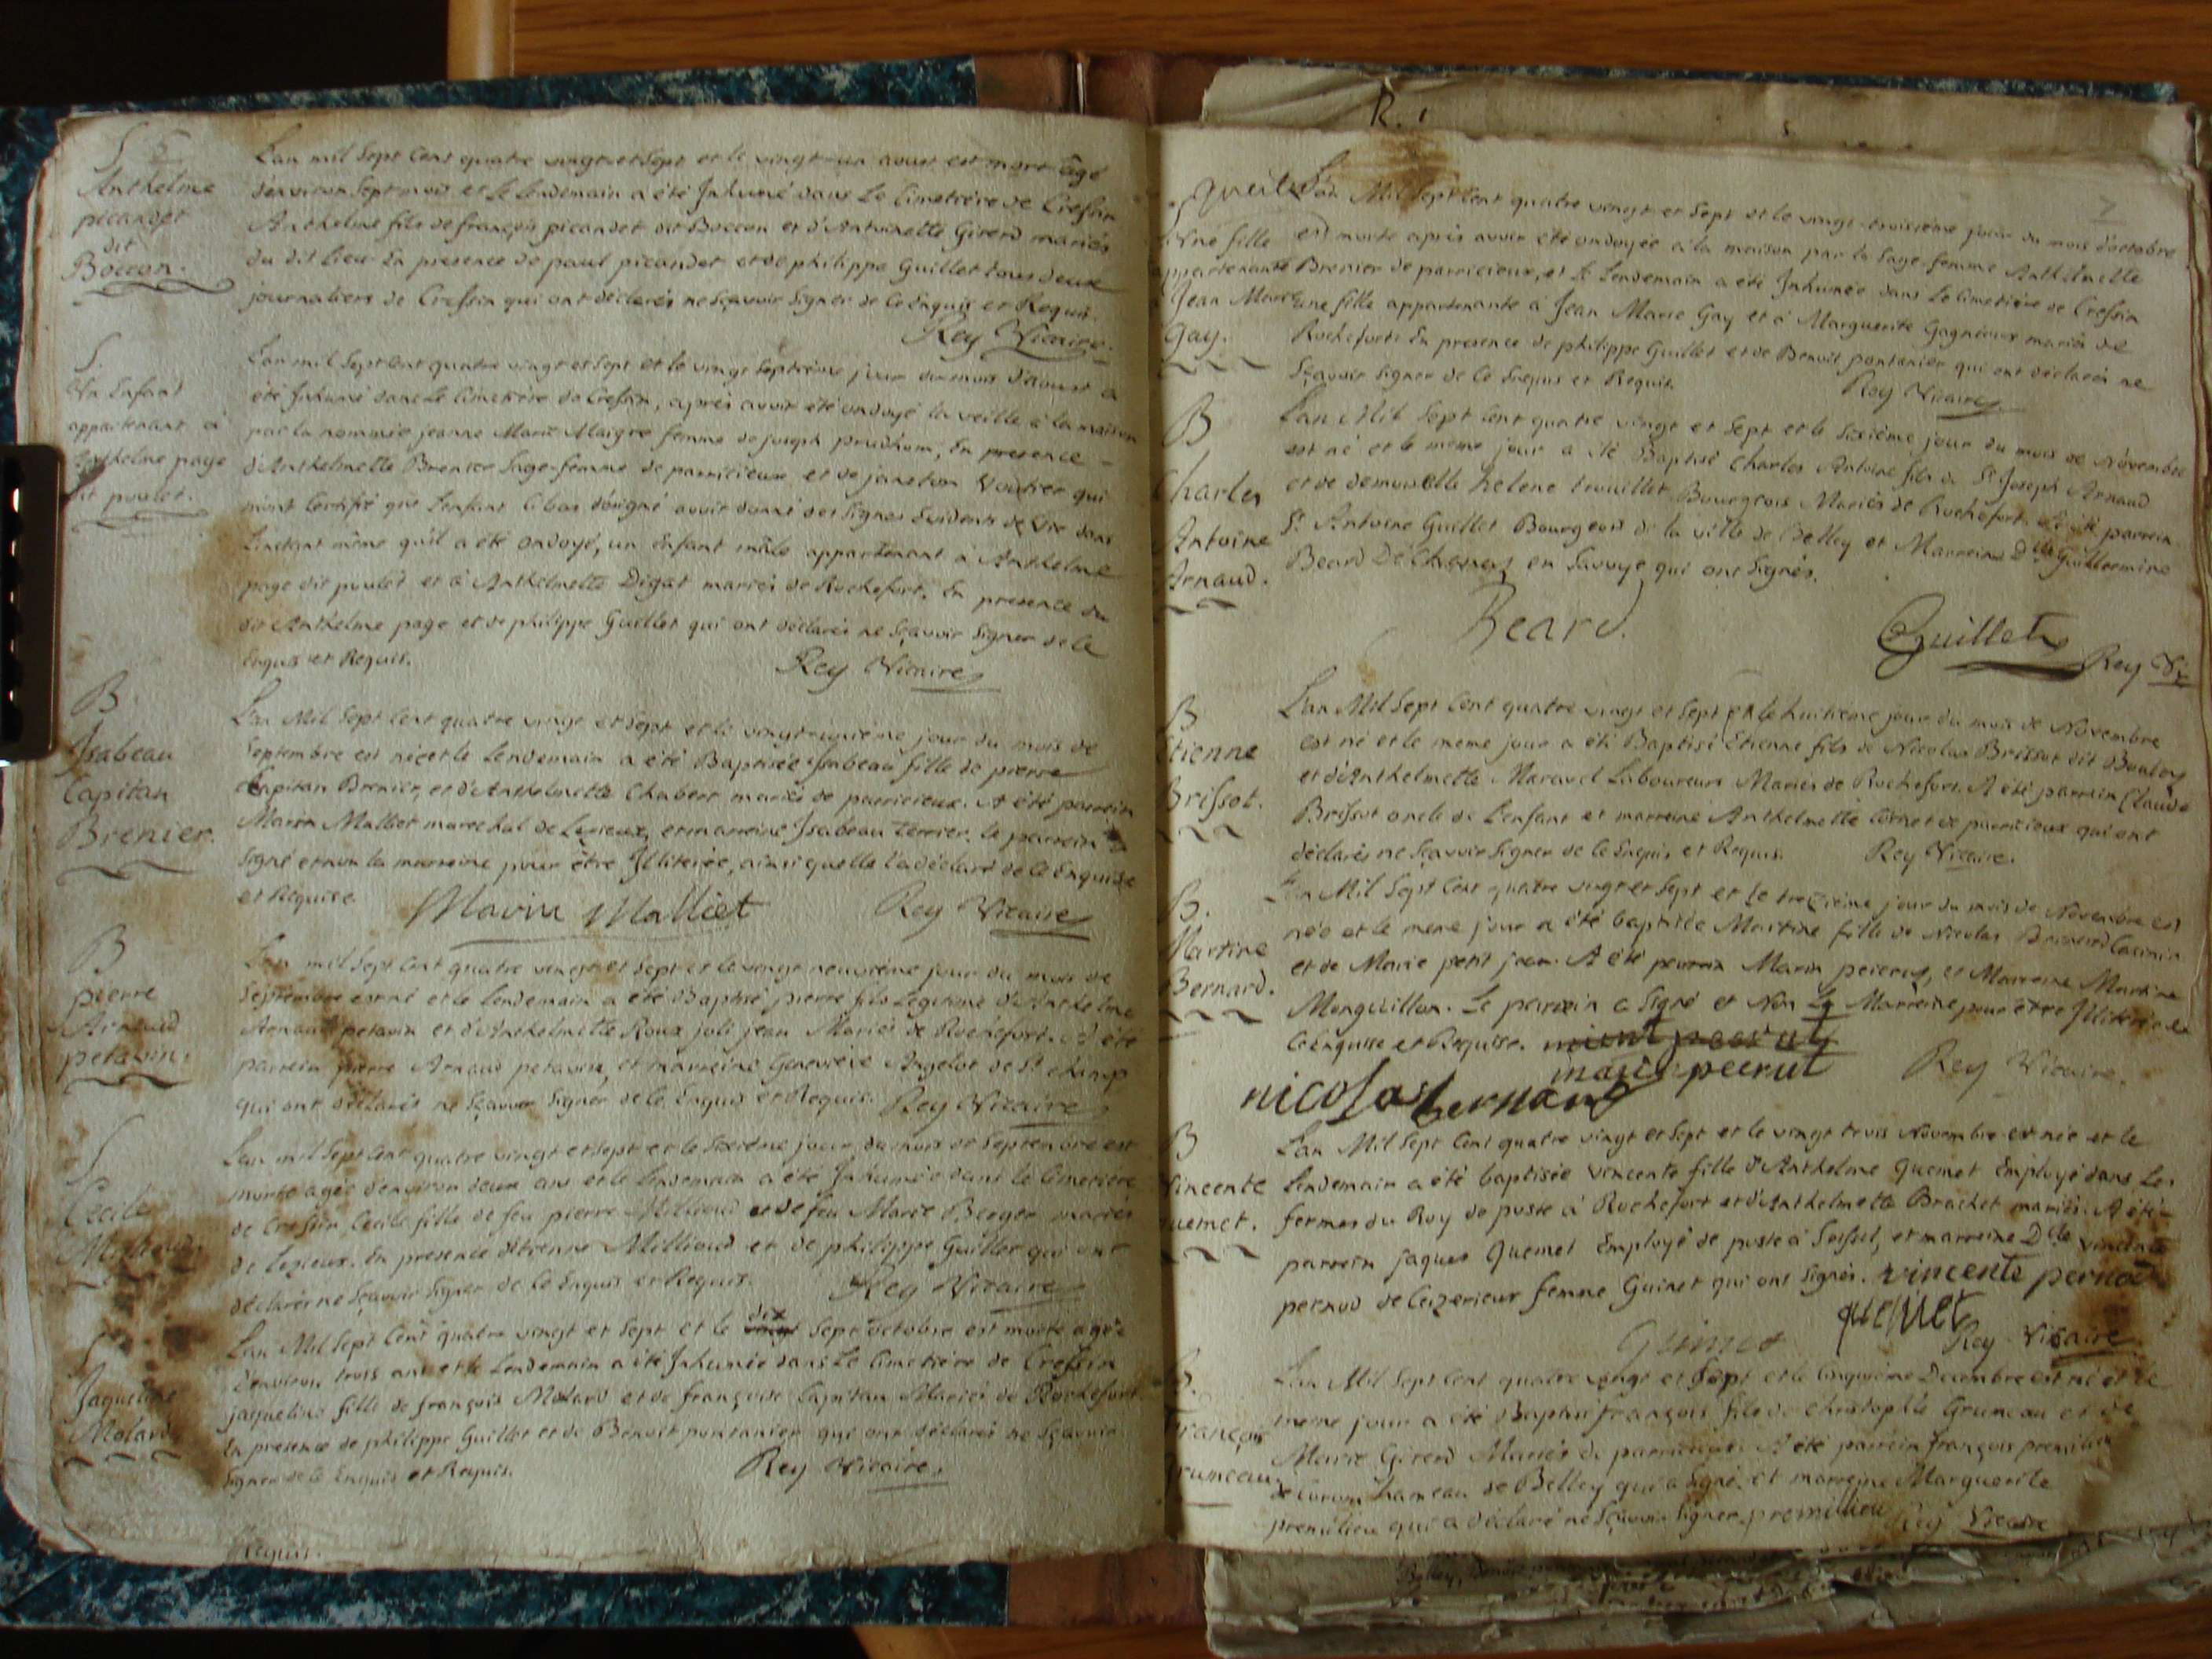 S
Anthelme
picandet
dit
Boccon.
L'an mil Sept Cent quatre vingt et Sept et le vingt-un aoust est mort âgé
d'environ Sept mois et le lendemain a été Inhumé dans le Cimetière de Cressin
Anthelme fils de françois picandet dit Boccon et d'Antoinette Girerd mariés
du dit lieu En presence de paul picandet et de philippe Guillet tous deux
journaliers de Cressin qui ont déclarés ne Sçavoir Signer de Ce Enquis et Requis.
Rey Vicaire.
S.
Un Enfant
appartenant à
Anthelme page
dit poulet.
L'an mil Sept Cent quatre vingt et Sept et le vingt Septième jour du mois d'Aoust a
été Inhumé dans le Cimetière de Cressin, après avoir été ondoyé la veille à la maison
par la nommée jeanne Marie Maigre femme de joseph prudhom, En presence
d'Anthelmette Brenier Sage-femme de parricieux et de janeton Voutier qui
m'ont Certifié que L'enfant Ci bas désigné avoit donné des Signes Evidents de Vie dans
L'instant même qu'il a été ondoyé, un Enfant mâle appartenant à Anthelme
page dit poulet et à Anthelmette Digat mariés de Rochefort. En presence du
dit Anthelme page et de philippe Guillet qui ont déclarés ne Sçavoir Signer de Ce
Enquis et Requis.
Rey Vicaire
B
Isabeau
Capitan
Brenier.
L'an Mil Sept Cent quatre vingt et Sept et le vingt-unième jour du mois de
Septembre est née et le lendemain a été Baptisée Isabeau fille de pierre
Capitan Brenier, et d'Anthelmette Chaber mariés de parricieux. A été parrein
Marin Malliet marechal de Lezieux, et marreine Isabeau Terrier. le parrein a
Signé et non la marreine pour être Illiterée, ainsi quelle l'a déclaré de Ce Enquise
et Requise
Marin Malliet
Rey Vicaire
B
pierre
Arnaud
petavin.
L'an mil Sept Cent quatre vingt et Sept et le vingt neuvième jour du mois de
Septembre est né et le lendemain a été Baptisé pierre fils Légitime d'Anthelme
Arnaud petavin et d'Anthelmette Roux joli jean Mariés de Rochefort. A été
parrein pierre Arnaud petavin, et marreine Genevieve Angelot de St champ
qui ont déclarés ne Sçavoir Signer de Ce Enquis et Requis. Rey Vicaire
S
Cecile
Millioud
L'an mil Sept Cent quatre vingt et Sept et le Sixième jour du mois de Septembre est
morte agée d'environ deux ans et le lendemain a été Inhumée dans le Cimetière
de Cressin Cecile fille de feu pierre Millioud et de feu Marie Berger mariés
de Lezieux. En presence d'Etienne Millioud et de philippe Guillet qui ont
déclarés ne Sçavoir Signer de Ce Enquis et Requis. Rey Vicaire
S
Jaqueline
Molard
L'an Mil Sept Cent quatre vingt et Sept et le vingt dix Sept octobre est morte agée
d'environ trois ans et le Lendemain a été Inhumée dans Le Cimetière de Cressin
jaqueline fille de françois Molard et de françoise Capitan Mariés de Rochefort
En presence de philippe Guillet et de Benoit pontanier qui ont déclarés ne Sçavoir
Signer de Ce Enquis et Requis.
Rey Vicaire.
Requis.
R.
7
Une fille
appartenante
Jean Marie
Gay.
L'an Mil Sept Cent quatre vingt et Sept et le vingt-troisième jour du mois d'octobre
est morte après avoir été ondoyée à la maison par la Sage-femme Anthelmette
Brenier de parricieux, et le lendemain a été Inhumée dans le Cimetière de Cressin
une fille appartenante à Jean Marie Gay et à Marguerite Gagnieux mariés de
Rochefort. En presence de philippe Guillet et de Benoit pontanier qui ont déclarés ne
Sçavoir Signer de Ce Enquis et Requis.
Rey Vicaire
B
Charles
Antoine
Arnaud.
L'an Mil Sept Cent quatre vingt et Sept et le Sixième jour du mois de Novembre
est né et le même jour a été Baptisé Charles Antoine fils de Sr Joseph Arnaud
et de demoiselle helene trouillet Bourgeois Mariés de Rochefort. A été parrein
Sr Antoine Guillet Bourgeois de la ville de Belley et Marreine Dlle Guillermine
Beard De Chanaz en Savoye qui ont Signés.
Beard.
Guillet
Rey Vic
B
Etienne
Brissot.
L'an Mil Sept Cent quatre vingt et Sept et le huitième jour du mois de Novembre
est né et le meme jour a été Baptisé Etienne fils de Nicolas Brissot dit
et d'Anthelmette Maraud Laboureurs Mariés de Rochefort. A été parrein Claude
Brissot oncle de L'enfant et marreine Anthelmette Cornet de parricieux qui ont
déclarés ne Sçavoir Signer de Ce Enquis et Requis. Rey Vicaire.
B.
Martine
Bernard.
L'an Mil Sept Cent quatre vingt et Sept et le treizième jour du mois de Novembre est
née et le meme jour a été baptisée Martine fille de Nicolas Bernard
et de Marie petit jean. A été parrein Marin peerut, et Marreine Martine
Monguillon. Le parrein a Signé et Non La Marreine, pour être Illiterée de
Ce Enquise et Requise.
marin peerut
nicolas bernard
Rey Vicaire.
B
Vincente
quemet.
L'an Mil Sept Cent quatre vingt et Sept et le vingt trois Novembre est née et le
Lendemain a été baptisée vincente fille d'Anthelme quemet Employé dans Les
fermes du Roy de poste à Rochefort et d'Anthelmette Brachet mariés. A été
parrein jaques quemet Employé de poste à Seissel, et marreine Dlle vincente
pernod de Ceizerieux femme Guinet qui ont Signés. vincente pernod
quemet
Guinet
Rey Vicaire
B.
françois
Gruneau
L'an Mil Sept Cent quatre vingt et Sept et le Cinquième Decembre est né et le
meme jour a été Baptisé françois fils de christophle Gruneau et de
Marie Girerd Mariés de parricieux. A été parrein françois premilieu
de Coron hameau de Belley qui a Signé. Et marreine Marguerite
premilieu qui a déclaré ne Sçavoir Signer. premilieu Rey Vicaire